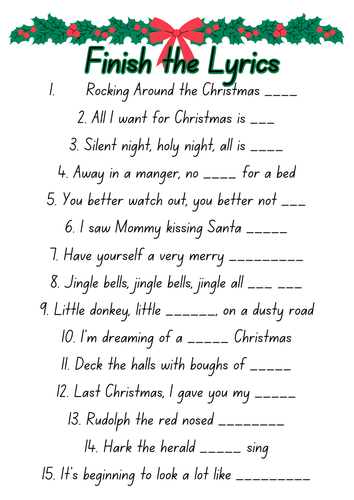 Finish the Lyrics
1. Rocking Around the Christmas ____
2. All I want for Christmas is ___
3. Silent night, holy night, all is ____
4. Away in a manger, no ____ for a bed
5. You better watch out, you better not ___
6. I saw Mommy kissing Santa _____
7. Have yourself a very merry _________
8. Jingle bells, jingle bells, jingle all ___ ___
9. Little donkey, little ______, on a dusty road
10. I'm dreaming of a _____ Christmas
11. Deck the halls with boughs of _____
12. Last Christmas, I gave you my _____
13. Rudolph the red nosed ________
14. Hark the herald _____ sing
15. It's beginning to look a lot like _________